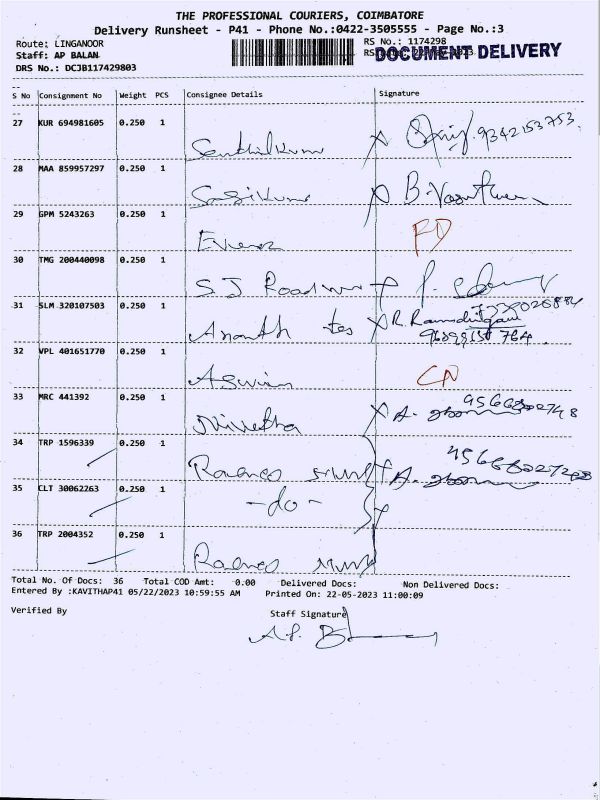 THE PROFESSIONAL COURIERS, COIMBATORE
Delivery Runsheet - P41 - Phone No.:0422-3505555 - Page No.:3
Route: LINGANOOR
RS No.: 1174298
Staff: AP BALAN
DOCUMENT DELIVERY
DRS No.: DCJB117429803
S No Consignment No Weight PCS Consignee Details Signature
27 KUR 694981605 0.250 1
Senthilkumar 9342153753
28 MAA 859957297 0.250 1
Sasikumar B.
29 GPM 5243263 0.250 1
RD
30 TMG 200440098 0.250 1
S J
31 SLM 320107503 0.250 1
Ananth tex R.
32 VPL 401651770 0.250 1
Aswin CN
33 MRC 441392 0.250 1
Nivetha A.
34 TRP 1596339 0.250 1
A.
35 CLT 30062263 0.250 1
-do-
36 TRP 2004352 0.250 1
Total No. Of Docs: 36 Total COD Amt: 0.00 Delivered Docs: Non Delivered Docs:
Entered By :KAVITHAP41 05/22/2023 10:59:55 AM Printed On: 22-05-2023 11:00:09
Verified By Staff Signature